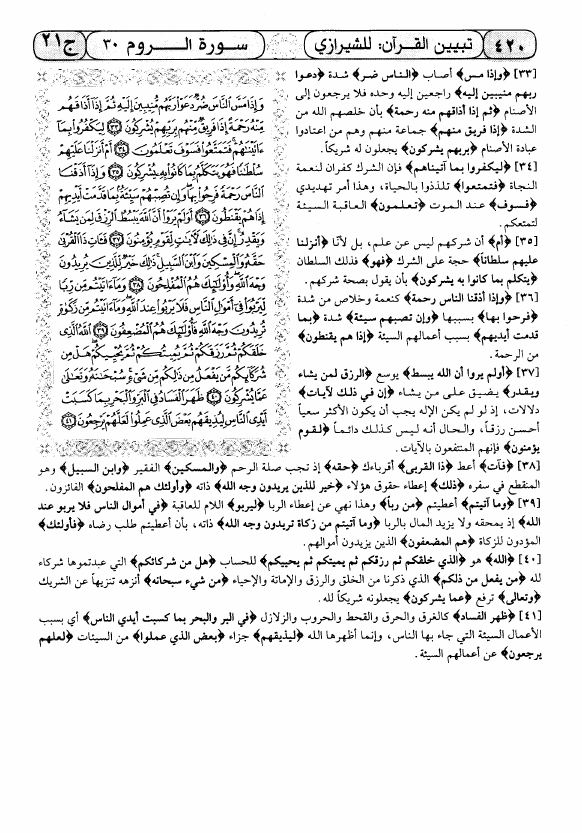 ٤٢٠
تبيين القرآن: للشيرازي
سورة الــروم ٣٠
ج٢١
[٣٣] ﴿وإذا مس﴾ أصاب ﴿الناس ضر﴾ شدة ﴿دعوا
ربهم منيبين إليه﴾ راجعين إليه وحده فلا يرجعون إلى
الأصنام ﴿ثم إذا أذاقهم منه رحمة﴾ بأن خلصهم الله من
الشدة ﴿إذا فريق منهم﴾ جماعة منهم وهم من اعتادوا
عبادة الأصنام ﴿بربهم يشركون﴾ يجعلون له شريكاً.
[٣٤] ﴿ليكفروا بما آتيناهم﴾ فإن الشرك كفران لنعمة
النجاة ﴿فتمتعوا﴾ تلذذوا بالحياة، وهذا أمر تهديدي
﴿فسوف﴾ عند الموت ﴿تعلمون﴾ العاقبة السيئة
لتمتعكم.
[٣٥] ﴿أم﴾ أن شركهم ليس عن علم، بل لأنّا ﴿أنزلنا
عليهم سلطاناً﴾ حجة على الشرك ﴿فهو﴾ فذلك السلطان
﴿يتكلم بما كانوا به يشركون﴾ بأن يقول بصحة شركهم.
[٣٦] ﴿وإذا أذقنا الناس رحمة﴾ كنعمة وخلاص من شدة
﴿فرحوا بها﴾ بسببها ﴿وإن تصبهم سيئة﴾ شدة ﴿بما
قدمت أيديهم﴾ بسبب أعمالهم السيئة ﴿إذا هم يقنطون﴾
من الرحمة.
[٣٧] ﴿أولم يروا أن الله يبسط﴾ يوسع ﴿الرزق لمن يشاء
ويقدر﴾ يضيق على من يشاء ﴿إن في ذلك لآيات﴾
دلالات، إذ لو لم يكن الإله يجب أن يكون الأكثر سعياً
أحسن رزقاً، والحال أنه ليس كذلك دائماً ﴿لقوم
يؤمنون﴾ فإنهم المنتفعون بالآيات.
وَإِذَا مَسَّ النَّاسَ ضُرٌّ دَعَوْا رَبَّهُم مُّنِيبِينَ إِلَيْهِ ثُمَّ إِذَا أَذَاقَهُم
مِّنْهُ رَحْمَةً إِذَا فَرِيقٌ مِّنْهُم بِرَبِّهِمْ يُشْرِكُونَ ٣٣ لِيَكْفُرُوا بِمَا
ءَاتَيْنَاهُمْ فَتَمَتَّعُوا فَسَوْفَ تَعْلَمُونَ ٣٤ أَمْ أَنزَلْنَا عَلَيْهِمْ
سُلْطَانًا فَهُوَ يَتَكَلَّمُ بِمَا كَانُوا بِهِ يُشْرِكُونَ ٣٥ وَإِذَا أَذَقْنَا
النَّاسَ رَحْمَةً فَرِحُوا بِهَا وَإِن تُصِبْهُمْ سَيِّئَةٌ بِمَا قَدَّمَتْ أَيْدِيهِمْ
إِذَا هُمْ يَقْنَطُونَ ٣٦ أَوَلَمْ يَرَوْا أَنَّ اللَّهَ يَبْسُطُ الرِّزْقَ لِمَن يَشَاءُ
وَيَقْدِرُ إِنَّ فِي ذَلِكَ لَآيَاتٍ لِّقَوْمٍ يُؤْمِنُونَ ٣٧ فَآتِ ذَا الْقُرْبَى
حَقَّهُ وَالْمِسْكِينَ وَابْنَ السَّبِيلِ ذَلِكَ خَيْرٌ لِّلَّذِينَ يُرِيدُونَ
وَجْهَ اللَّهِ وَأُولَئِكَ هُمُ الْمُفْلِحُونَ ٣٨ وَمَا ءَاتَيْتُم مِّن رِّبًا
لِّيَرْبُوَا فِي أَمْوَالِ النَّاسِ فَلَا يَرْبُوا عِندَ اللَّهِ وَمَا ءَاتَيْتُم مِّن زَكَاةٍ
تُرِيدُونَ وَجْهَ اللَّهِ فَأُولَئِكَ هُمُ الْمُضْعِفُونَ ٣٩ اللَّهُ الَّذِي
خَلَقَكُمْ ثُمَّ رَزَقَكُمْ ثُمَّ يُمِيتُكُمْ ثُمَّ يُحْيِيكُمْ هَلْ مِن
شُرَكَائِكُم مَّن يَفْعَلُ مِن ذَلِكُم مِّن شَيْءٍ سُبْحَانَهُ وَتَعَالَى
عَمَّا يُشْرِكُونَ ٤٠ ظَهَرَ الْفَسَادُ فِي الْبَرِّ وَالْبَحْرِ بِمَا كَسَبَتْ
أَيْدِي النَّاسِ لِيُذِيقَهُم بَعْضَ الَّذِي عَمِلُوا لَعَلَّهُمْ يَرْجِعُونَ ٤١
[٣٨] ﴿فآت﴾ أعط ﴿ذا القربى﴾ أقرباءك ﴿حقه﴾ إذ تجب صلة الرحم ﴿والمسكين﴾ الفقير ﴿وابن السبيل﴾ وهو
المنقطع في سفره ﴿ذلك﴾ إعطاء حقوق هؤلاء ﴿خير للذين يريدون وجه الله﴾ ذاته ﴿وأولئك هم المفلحون﴾ الفائزون.
[٣٩] ﴿وما آتيتم﴾ أعطيتم ﴿من ربا﴾ وهذا نهي عن إعطاء الربا ﴿ليربو﴾ اللام للعاقبة ﴿في أموال الناس فلا يربو عند
الله﴾ إذ يمحقه ولا يزيد المال بالربا ﴿وما آتيتم من زكاة تريدون وجه الله﴾ ذاته، بأن أعطيتم طلب رضاه ﴿فأولئك﴾
المؤدون للزكاة ﴿هم المضعفون﴾ الذين يزيدون أموالهم.
[٤٠] ﴿الله﴾ هو ﴿الذي خلقكم ثم رزقكم ثم يميتكم ثم يحييكم﴾ للحساب ﴿هل من شركائكم﴾ التي عبدتموها شركاء
لله ﴿من يفعل من ذلكم﴾ الذي ذكرنا من الخلق والرزق والإماتة والإحياء ﴿من شيء سبحانه﴾ أنزهه تنزيهاً عن الشريك
﴿وتعالى﴾ ترفع ﴿عما يشركون﴾ يجعلونه شريكاً لله.
[٤١] ﴿ظهر الفساد﴾ كالغرق والحرق والقحط والحروب والزلازل ﴿في البر والبحر بما كسبت أيدي الناس﴾ أي بسبب
الأعمال السيئة التي جاء بها الناس، وإنما أظهرها الله ﴿ليذيقهم﴾ جزاء ﴿بعض الذي عملوا﴾ من السيئات ﴿لعلهم
يرجعون﴾ عن أعمالهم السيئة.